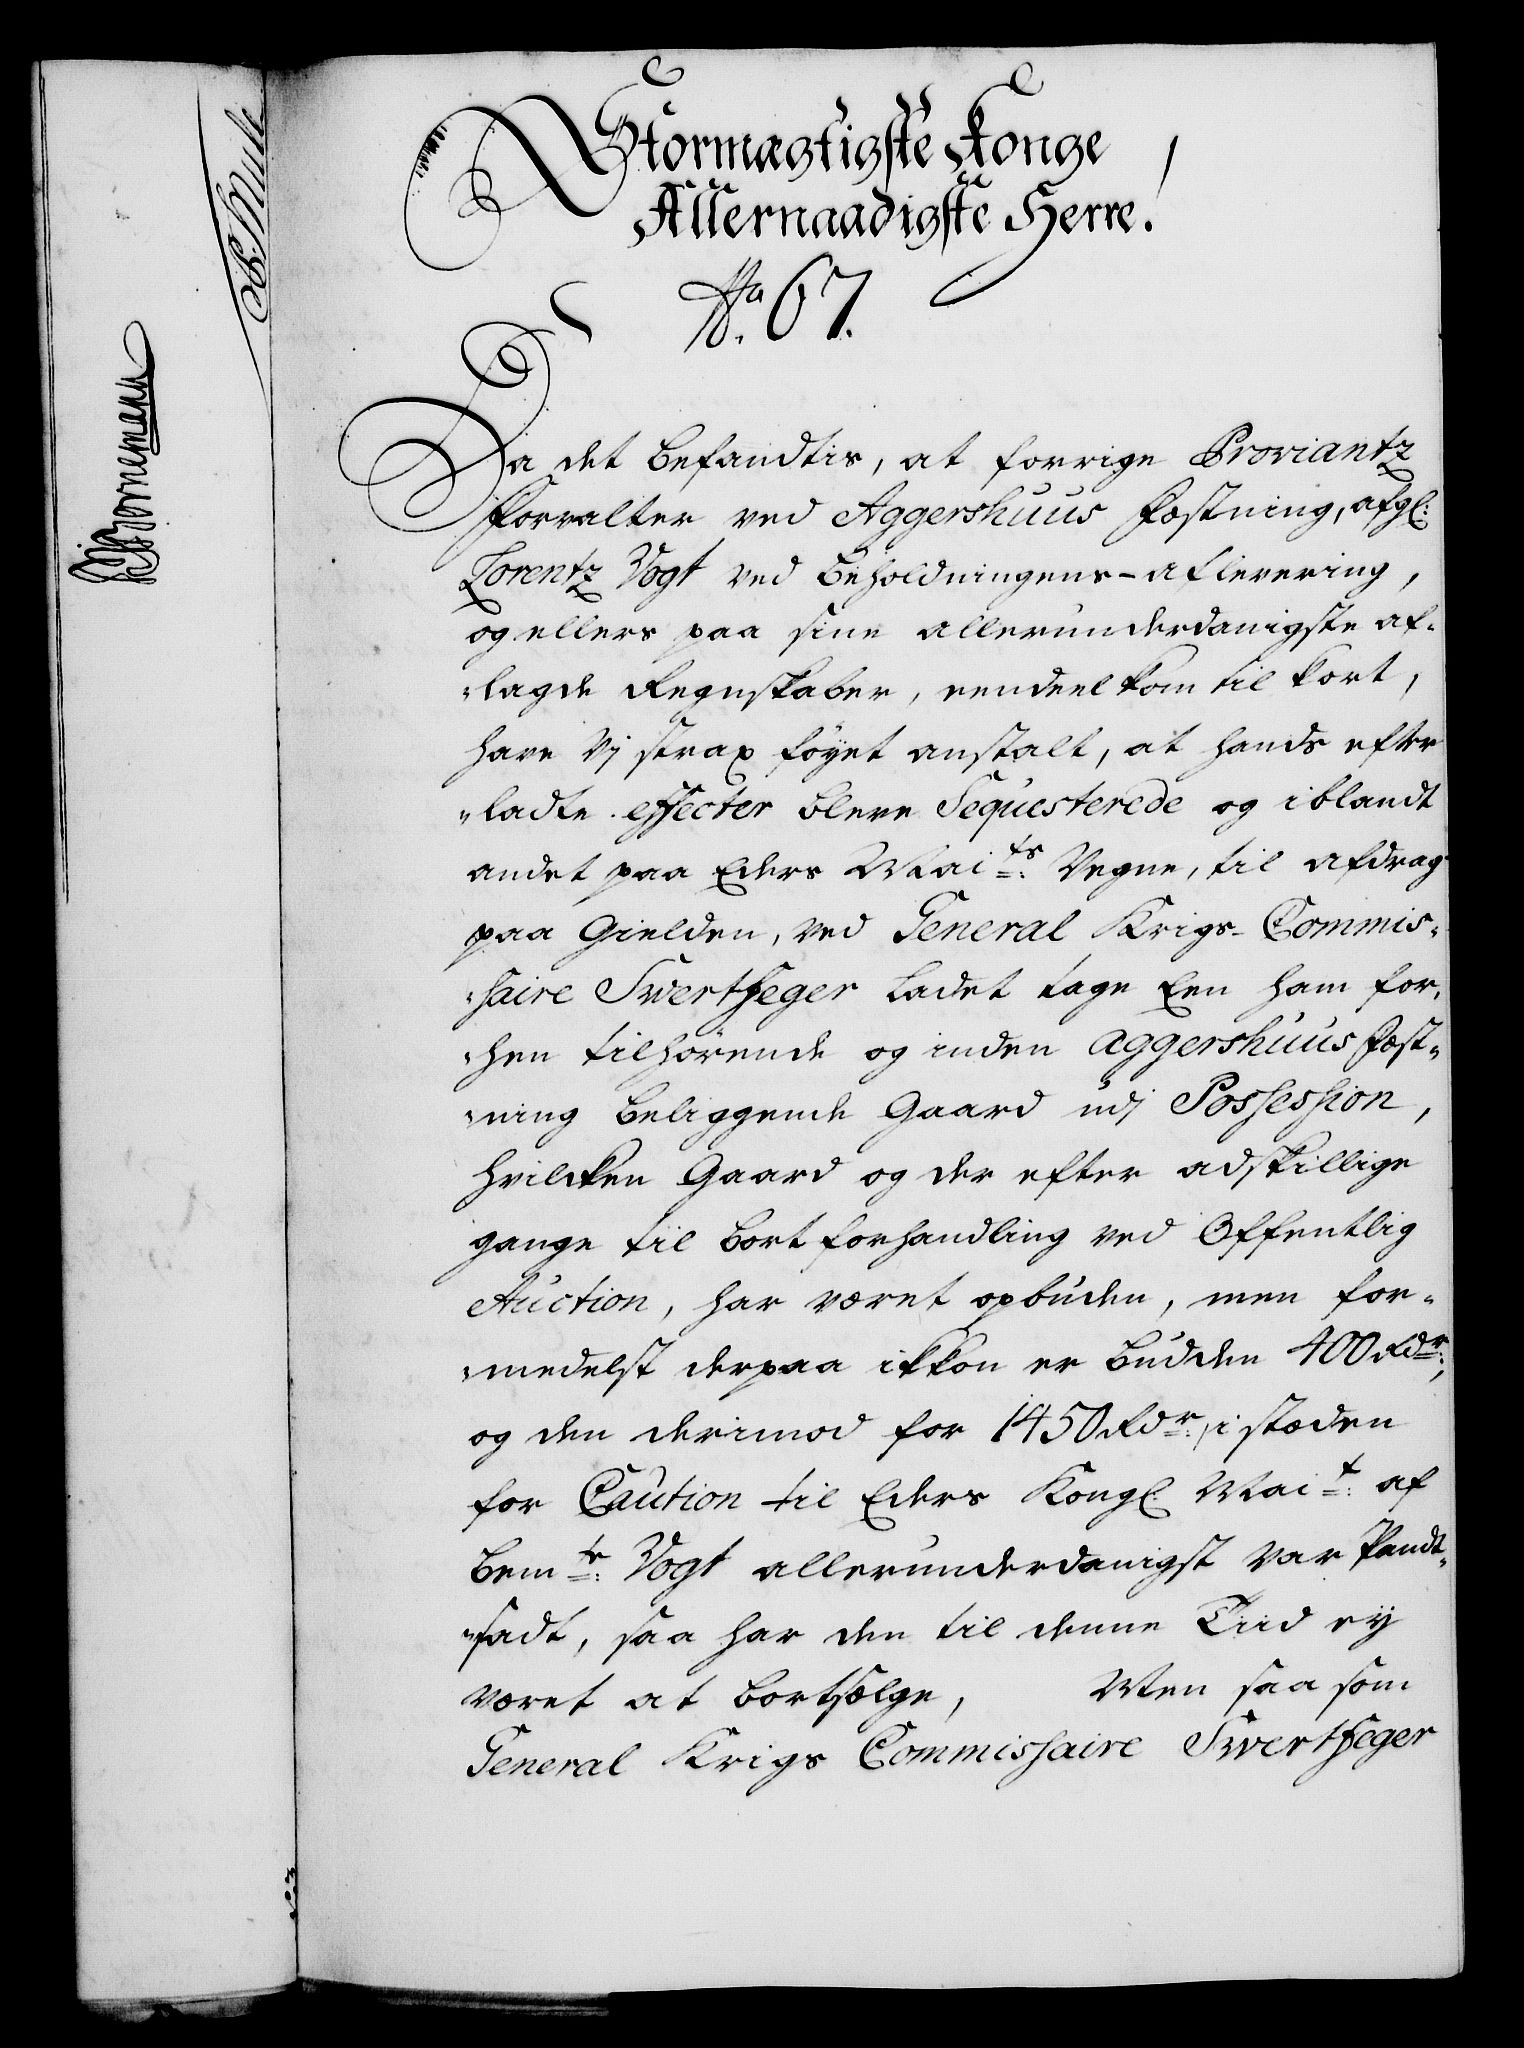 Stormægtigste Konge
Allernaadigste Herre!
No. 67.
Da det befandtis, at forrige Proviantz
Forvalter ved Aggershuus Fæstning, afgl:
Lorentz Vogt ved Beholdningens-aflevering,
og ellers paa sine allerunderdanigste af-
lagde Regnskaber, eendeel kom til kort,
have Vj strax føyet anstalt, at hands efter
ladte effecter bleve Sequesterede og iblandt
andet paa Eders Maits: Vegne, til afdrag
paa Gielden, ved General Krigs-Commis-
saire Svertfeger ladet tage Een ham for-
hen tilhörende og inden Aggershuus Fæst-
ning beliggende Gaard udj Possession,
hvilcken Gaard og der efter adskillige
gange til bortforhandling ved Offentlig
Auction, har været opbuden, men for-
medelst derpaa ikkon er budden 400 Rdr:,
og den derimod for 1450 Rdr:, i stæden
for Caution til Eders Kongl: Mait: af
bemte: Vogt allerunderdanigst var Pandt-
sadt, saa har den til denne Tiid ey
været at bortsælge, Men saa som
General Krigs Commissaire Svertfeger
Bornemann